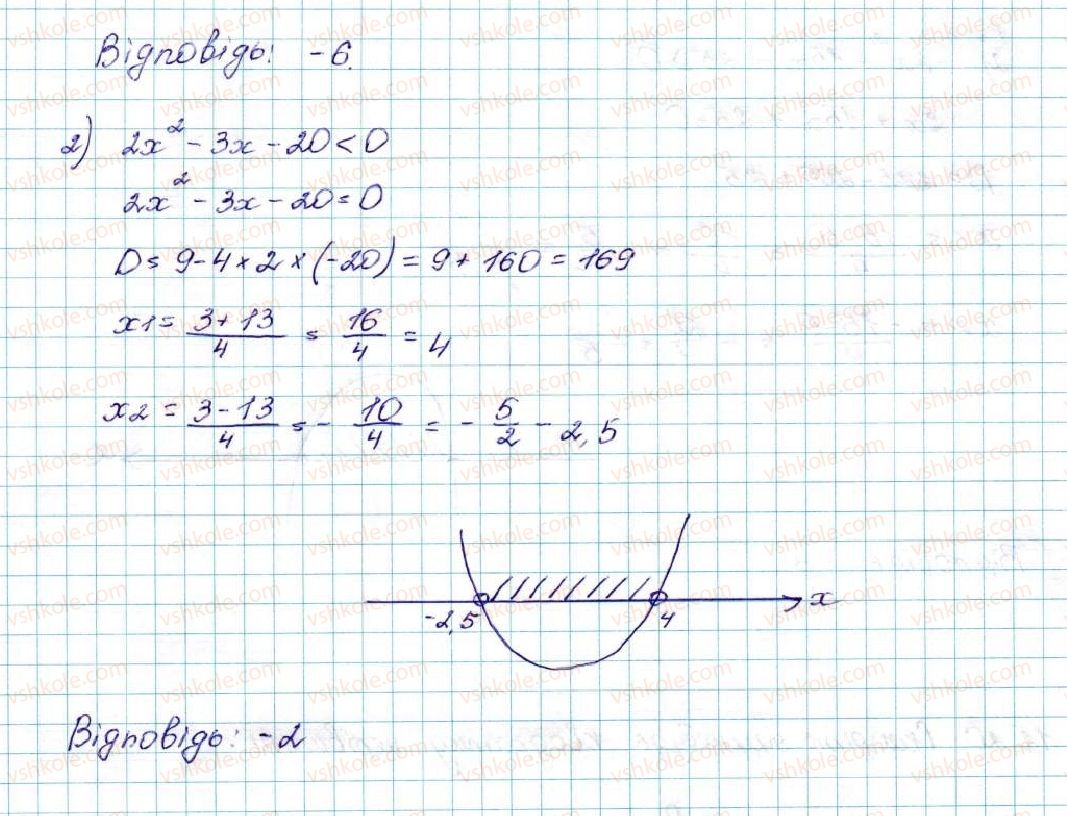 Відповідь: -6.
2) 2x² - 3x - 20 < 0
2x² - 3x - 20 = 0
D = 9 - 4 × 2 × (-20) = 9 + 160 = 169
x1 = (3 + 13)/4 = 16/4 = 4
x2 = (3 - 13)/4 = - 10/4 = - 5/2 - 2,5
-2,5 4 x
Відповідь: -2
vshkole.com